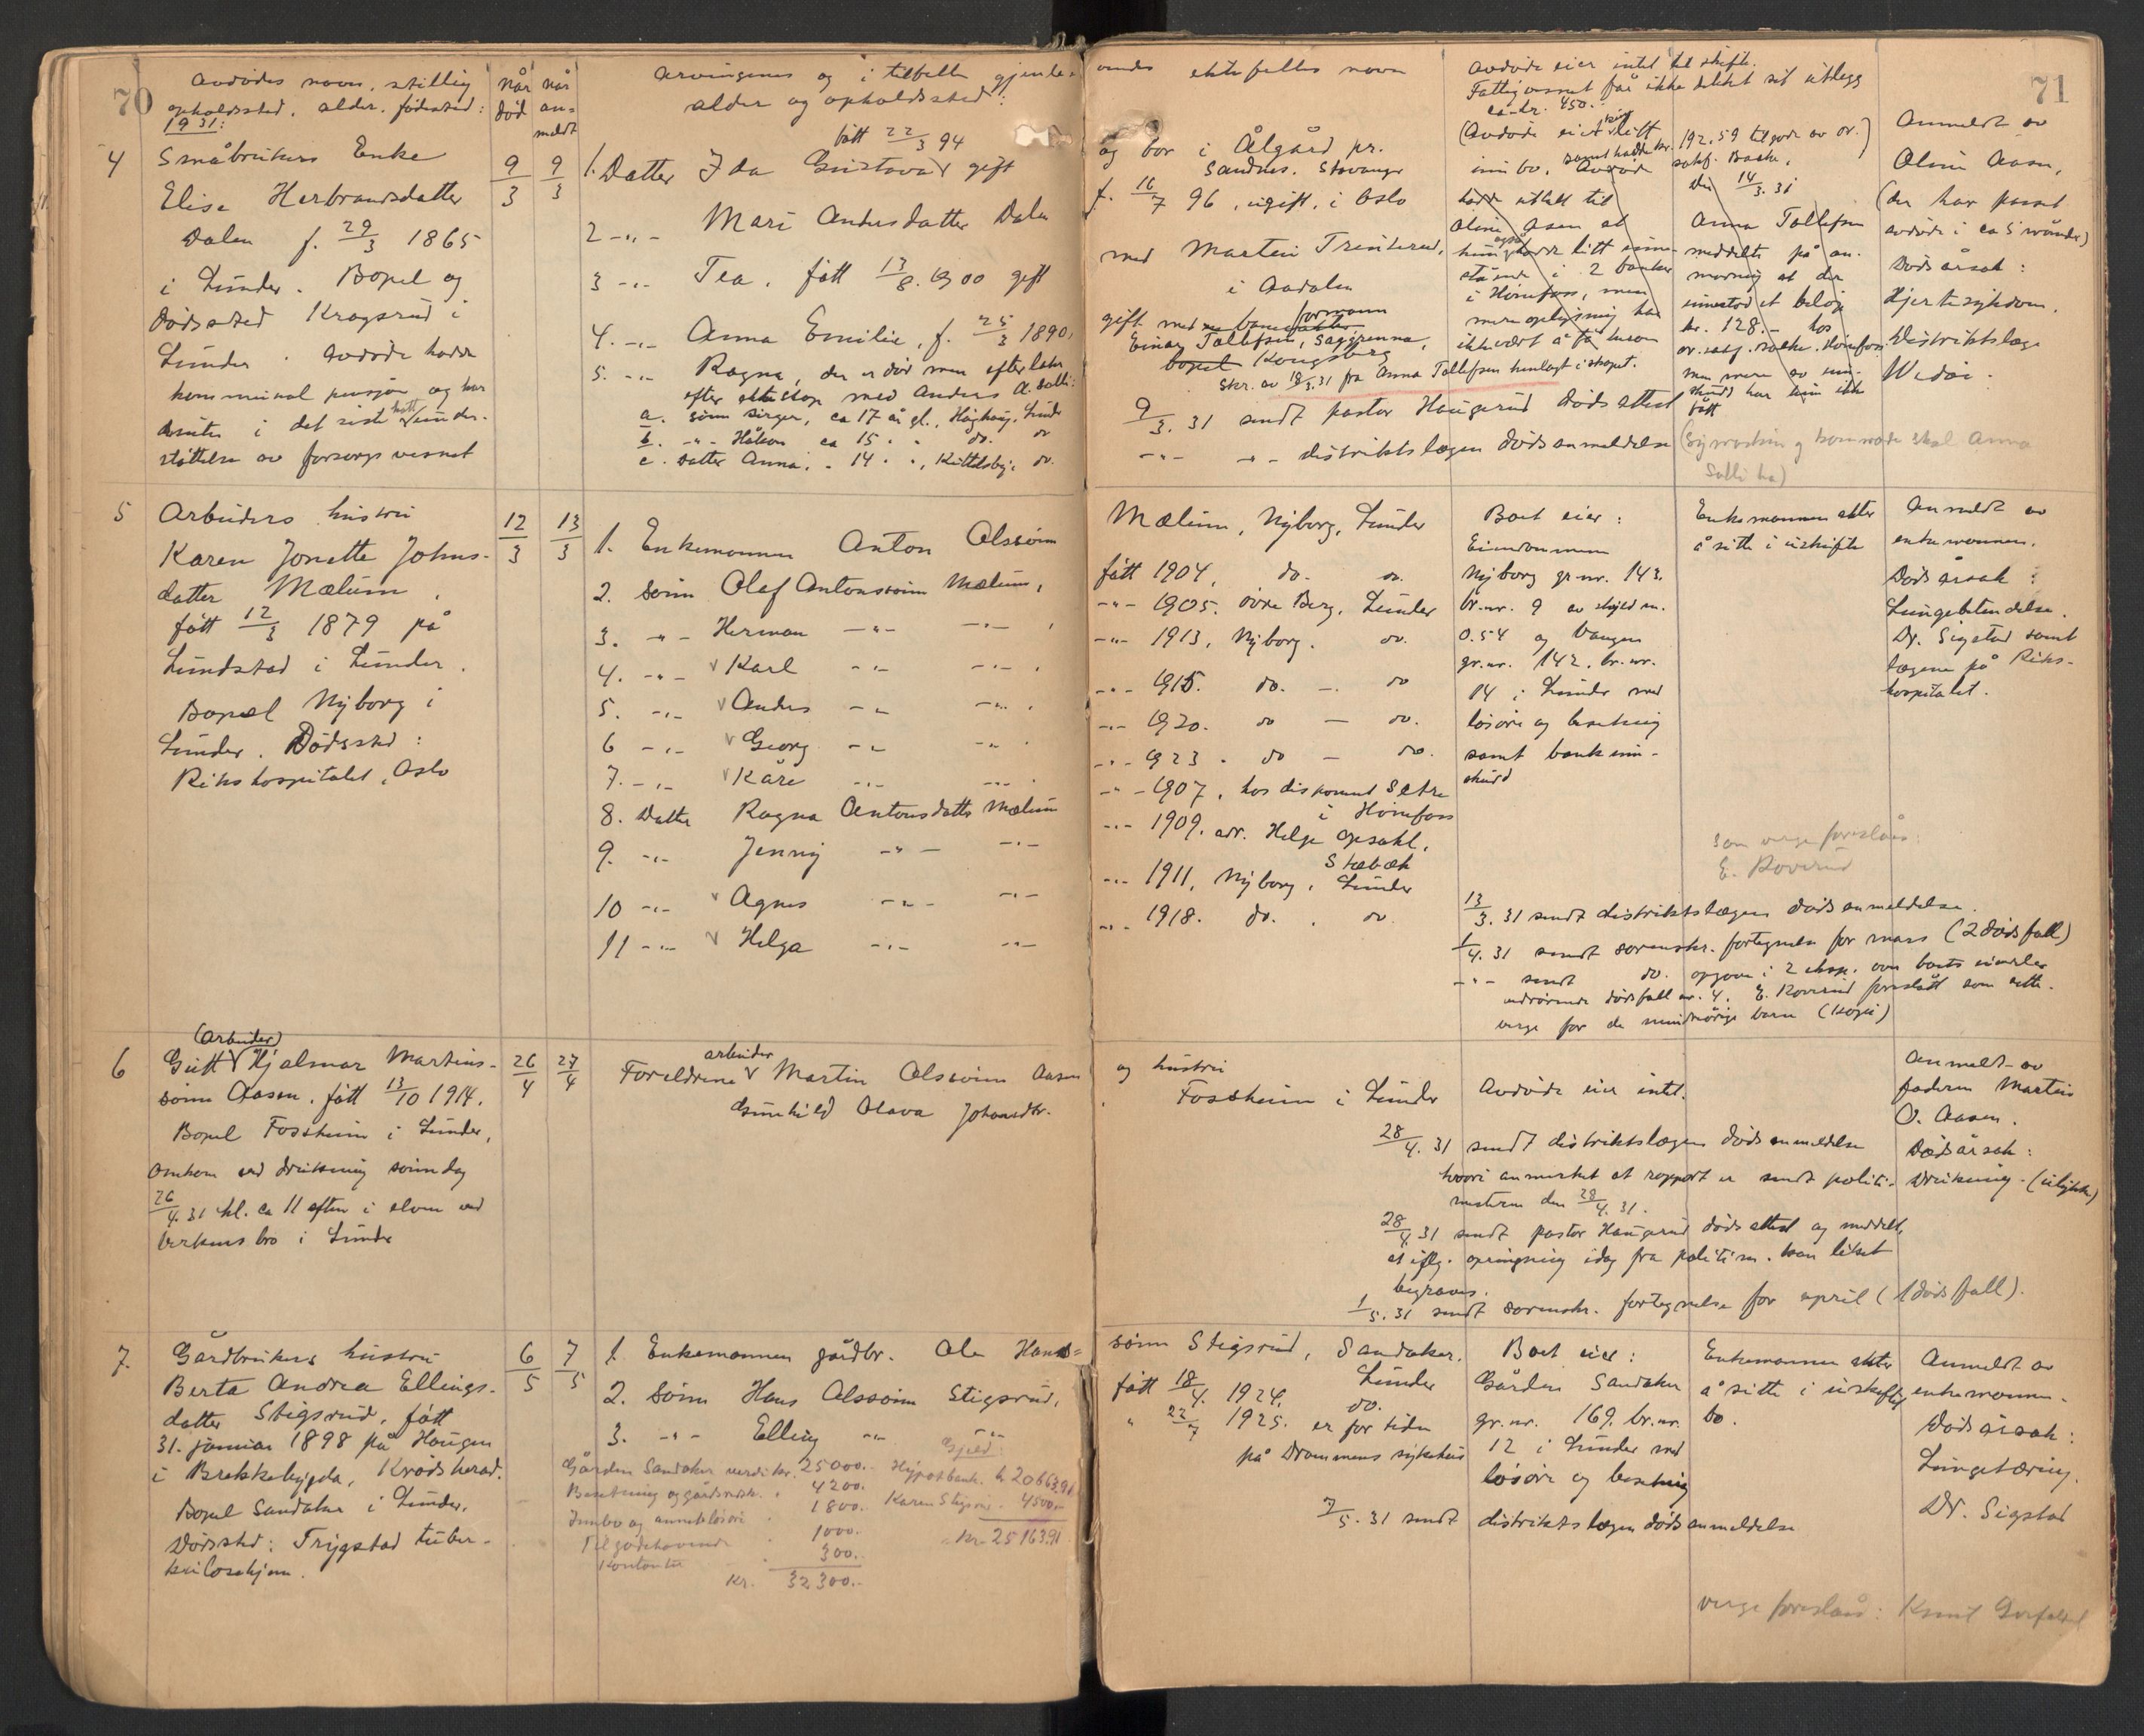 70
Avdødes navn, stilling
opholdssted, alder, fødested:
1931:
når
død
når
an=
meldt
Arvingenes og i tilfelle gjenle-
alder og opholdssted:
4
Småbrukers Enke
Elise Herbrandsdatter
Dalen f. 29/3 1865
i Lunder. Bopel og
dødssted Kragsrud i
Lunder. Avdøde hadde
kommunal pensjon og har
desuten i det siste hatt under-
støttelse av forsorgsvesenet
9/3
9/3
født 22/3 94
1. Datter Ida Gustava gift
2 -"- Mari Andersdatter Dalen
3 -"- Tea, født 13/8.1900 gift
4. -"- Anna Emilie, f. 25/3 1890,
5. -"- Ragna, der er død men efterlater
efter ekteskap med Anders A. Solli:
a. sønn Birger, ca 17 år gl., Høghaug, Lunder
b. -"- Håkon ca 15 " " do. do
c. datter Anna, " 14 " ", Kittelsby, do.
5
Arbeiders hustru
Karen Jonette Johns-
datter Mælum,
født 12/3 1879 på
Lundstad i Lunder.
Bopæl Nyborg i
Lunder. Dødssted:
Rikshospitalet, Oslo
12/3
13/3
1. Enkemannen Anton Olssønn
2. sønn Olaf Antonssønn Mælum,
3. -"- Herman -"- -"- ,
4. -"- v Karl -"- -"- .
5. -"- v Anders -"- -"- .
6 -"- v Georg -"- -"- .
7. -"- v Kåre -"- -"- .
8. Datter Ragna Antonsdatter Mælum
9. -"- Jenny -"- -"-
10 -"- v Agnes -"- -"-
11 -"- v Helga -"- -"-
6
(Arbeider)
Gutt v Hjalmar Martins-
sønn Aasen, født 13/10 1914.
Bopel Fossheim i Lunder,
Omkom ved drukning sønndag
26/4.31 kl. ca 11 efterm i elven ved
bro i Lunder
26/4
27/4
arbeider
Foreldrene v Martin Olssønn Aasen
Gunhild Olava Johansdtr.
7.
Gårdbrukers hustru
Berta Andrea Ellings-
datter Stigsrud, født
31. januar 1898 på Haugen
i Brekkebygda, Krødsherad.
Bopel Sandaker i Lunder.
Dødssted: Trygstad tuber-
kulosehjem.
6/5
7/5
1. Enkemannen gårdbr. Ole Hans=
2. Sønn Hans Olssønn Stigsrud,
3. -"- Elling -"- -"-
Gjeld:
Gården Sandaker verdi kr. 25000.- Hypotekbank. kr 20663.91
Besetning og gårdsredsk. " 4200.- Karen Stigsrud - 4500.-
Innbo og annet løsøre " 1800.-
Tilgodehavende " 1000.- kr. 25163.91
Kontanter " 300.-
Kr. 32300.-
71
vende ektefelles navn
Avdøde eier intet til skifte.
Fattigvesenet får ikke dekket sit utlegg
ca. kr. 450.-
(Avdøde eiet litt
innbo, samt hadde kr. 192,59 tilgode av or.)
Avdøde
hadde uttalt til
Oline Aasen at
hun også hadde litt inne-
stående i 2 banker
i Hønefoss, men
mere oplysning har
ikke vært å få herom
den 14/3.31
Anna Tollefsen
meddelte på an-
modning at der
innestod et beløp
kr. 128.- hos
or.sakf. Bakke, Hønefoss
men mere av inn-
skudd har hun ikke
fått
Anmeldt av
Oline Aasen,
(der har passet
avdøde i ca 5 måneder)
Dødsårsak:
Hjertesykdom.
Distriktslæge
Widøe.
og bor i Ålgård pr.
Sandnes. Stavanger
f. 16/7 96, ugift, i Oslo
med Martin Trinterud,
i Aadalen
gift med formann
Einar Tollefsen, Saggrenna,
bopel Kongsberg
Skr. av 18/3.31 fra Anna Tollefsen henlagt i skapet.
9/3.31 sendt pastor Haugerud dødsattest
-"- -"- distriktslægen dødsanmeldelse
(Symaskin og kommode skal Anna
Solli ha)
Mælum, Nyborg, Lunder
født 1904, do. do.
-"- 1905. øvre Berg, Lunder
-"- 1913, Nyborg. do.
-"- 1915. do. - do
-"- 1920. do - do.
-"- 1923 . do - do.
-"- 1907, hos disponent Setre
i Hønefoss
-"- 1909. adv. Helge Opsahl,
Stabæk
-"- 1911, Nyborg, Lunder
-"- 1918. do. . do
Boet eier:
Eiendommen
Nyborg gr.nr. 143.
br.nr. 9 av skyld m.
0.54 og Vangen
gr.nr. 142. br.nr.
14 i Lunder med
løsøre og besetning
samt bankinn-
skudd
Enkemannen akter
å sitte i uskifte
Anmeldt av
enkemannen.
Dødsårsak:
Lungebetendelse.
Dr. Sigstad samt
lægene på Riks-
hospitalet.
Som verge foreslåes:
E. Roverud
13/3.31 sendt distriktslægen dødsanmeldelse.
1/4.31 sendt sorenskr. fortegnelse for mars (2 dødsfall)
-"- sendt do. opgave i 2 eksp. over boets eiendeler
vedrørende dødsfall nr. 4. E. Roverud foreslått som sette-
verge for de mindreårige barn (kopi)
og hustru
Fossheim i Lunder
Avdøde eier intet.
Anmeldt av
faderen Martin
O. Aasen.
Dødsårsak:
Drukning. (ulykke)
28/4.31 sendt distriktslægen dødsanmeldelse
hvori anmerket at rapport er sendt politi-
mesteren den 28/4.31.
28/4.31 sendt pastor Haugerud dødsattest og meddelt,
at iflg. opringning idag fra politim. kan liket
begraves.
1/5.31 sendt sorenskr. fortegnelse for april (1 dødsfall).
sønn Stigsrud, Sandaker.
Lunder
født 18/4. 1924, do.
" 22/7 1925. er for tiden
på Drammens sykehus
Boet eier:
Gården Sandaker
gr.nr. 169. br.nr.
12 i Lunder med
løsøre og besetning
Enkemannen akter
å sitte i uskiftet
bo.
Anmeldt av
enkemannen.
Dødsårsak:
Lungetæring.
Dr. Sigstad
7/5.31 sendt distriktslægen dødsanmeldelse
verge foreslåes: Knut